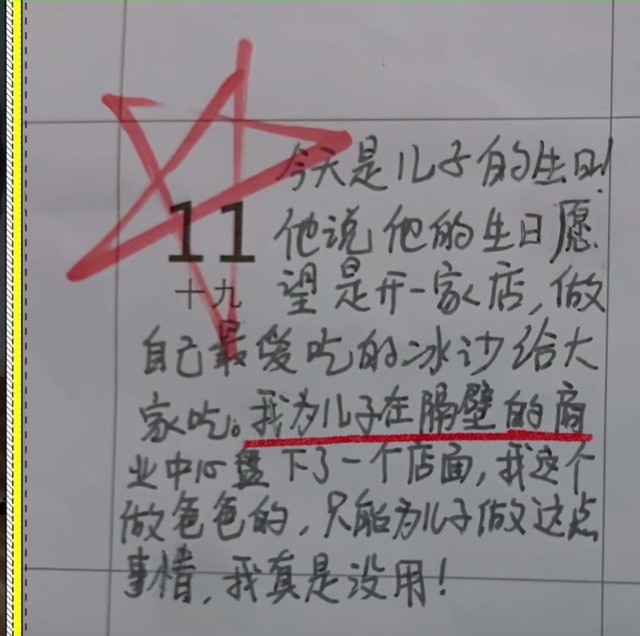 今天是儿子的生日!
11
他说他的生日愿
十九
望是开一家店,做
自己最爱吃的冰沙给大
家吃。我为儿子在隔壁的商
业中心盘下了一个店面,我这个
做爸爸的,只能为儿子做这点
事情,我真是没用!